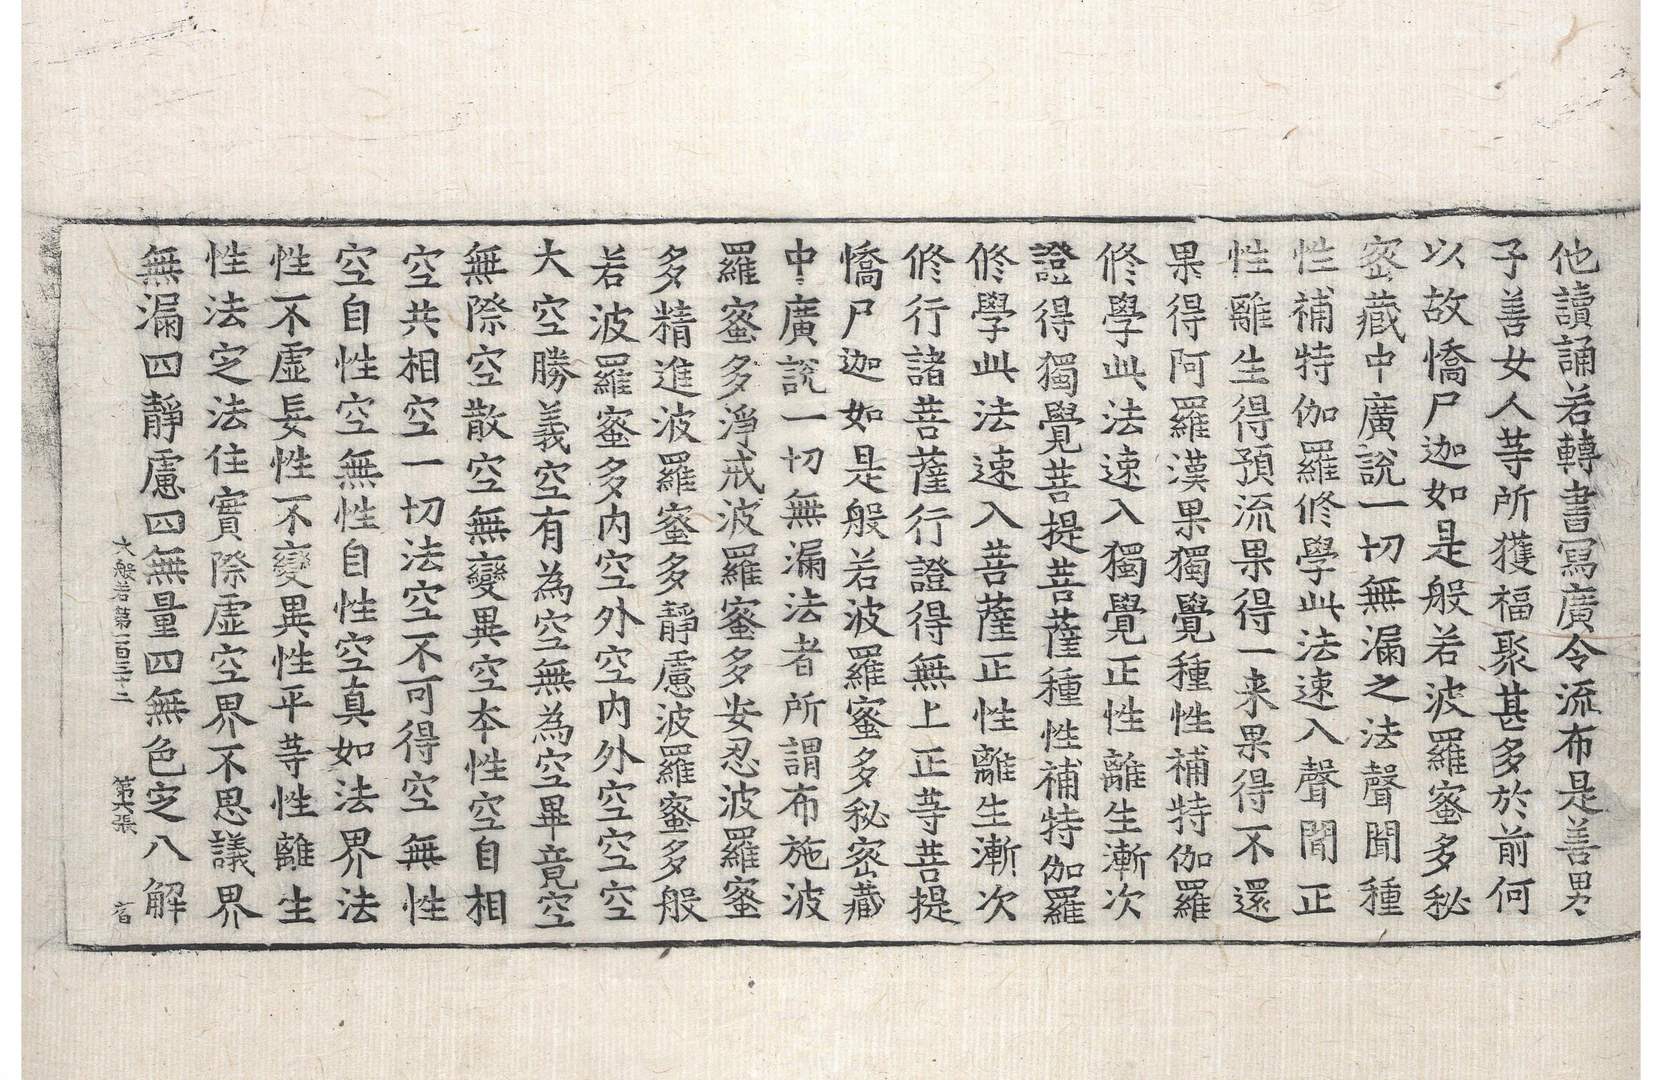 他讀誦若轉書寫廣令流布是善男
子善女人等所獲福聚甚多於前何
以故憍尸迦如是般若波羅蜜多秘
密藏中廣說一切無漏之法聲聞種
性補特伽羅修學此法速入聲聞正
性離生得預流果得一来果得不還
果得阿羅漢果獨覺種性補特伽羅
修學此法速入獨覺正性離生漸次
證得獨覺菩提菩薩種性補特伽羅
修學此法速入菩薩正性離生漸次
修行諸菩薩行證得無上正等菩提
憍尸迦如是般若波羅蜜多秘密藏
中廣說一切無漏法者所謂布施波
羅蜜多淨戒波羅蜜多安忍波羅蜜
多精進波羅蜜多靜慮波羅蜜多般
若波羅蜜多内空外空内外空空空
大空勝義空有為空無為空畢竟空
無際空散空無變異空本性空自相
空共相空一切法空不可得空無性
空自性空無性自性空真如法界法
性不虛妄性不變異性平等性離生
性法定法住實際虛空界不思議界
無漏四靜慮四無量四無色定八解
大般若第一百三十二 第六張 宿